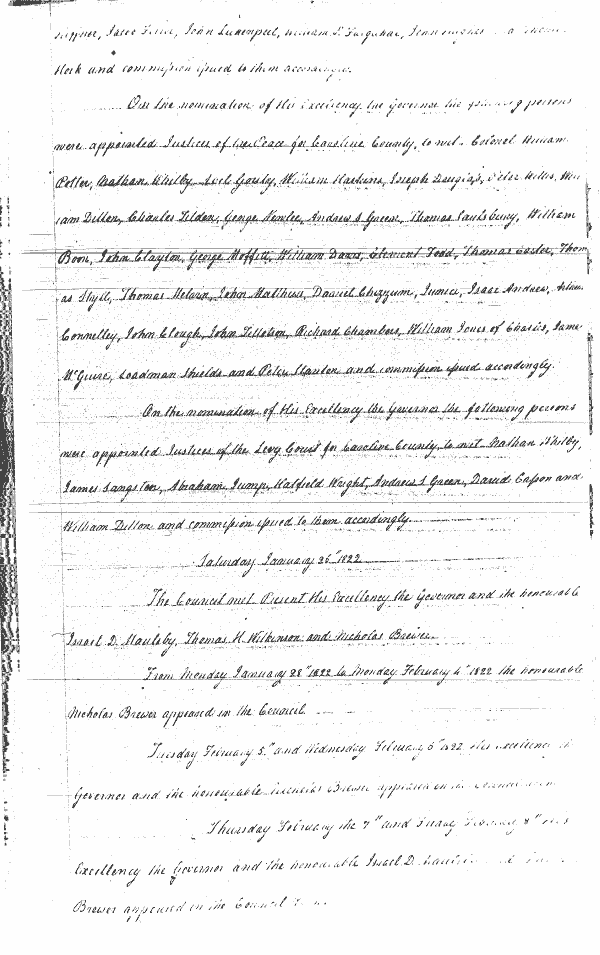 John
Work and commission issued to them accordingly.
On the nomination of His Excellency the Governor the following persons
were appointed Justices of the Peace for Caroline County, to wit. Colonel William
Potter, Nathan Whitby, William Haskins, Joseph Douglass, Peter Willis, Will
iam Dillon, Charles Tilden, George Newlee, Andrew S Green, Thomas Saulsbury, William
Boon, John Clayton, George Moffitt, William Daws, Clement Todd, Thomas Carter, Thom
as Styll, Thomas Melvin, John Matthews, Daniel Chezzum, Junior, Isaac Andrew,
Connelley, John Clough, John Tillotson, Richard Chambers, William Jones of Charles, Jame
McGuire, Loadman Shields and Peter Stanton and commission issued accordingly.
On the nomination of His Excellency the Governor the following persons
were appointed Justices of the Levy Court for Caroline County, to wit Nathan Whitby,
James Langston, Abraham Jump, Hatfield Wright, Andrew S Green, David Casson and
William Dillon and commission issued to them accordingly.
Saturday January 26th 1822
The Council met Present His Excellency the Governor and the honourable
Israel D. Maulsby, Thomas H. Wilkinson and Nicholas Brewer.
From Monday January 28th 1822 to Monday February 4th 1822 the honourable
Nicholas Brewer appeared in the Council.
Tuesday February 5th and Wednesday February 6th 1822 His Excellency the
Governor and the honourable Nicholas Brewer appeared in the Council
Thursday February the 7th and Friday February 8th His
Excellency the Governor and the honourable Israel D. Maulsby
Brewer appeared in the Council